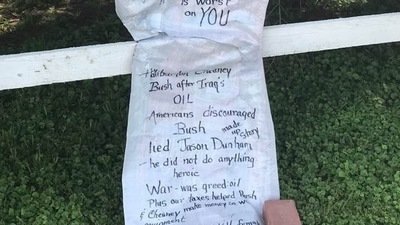 is worst
on YOU
Cheaney
Bush after Iraq's
OIL
Americans discouraged
Bush made up story
lied Jason Dunham
- he did not do anything
heroic
War - was greed: oil
Plus our taxes helped Bush
& Cheaney make money on w